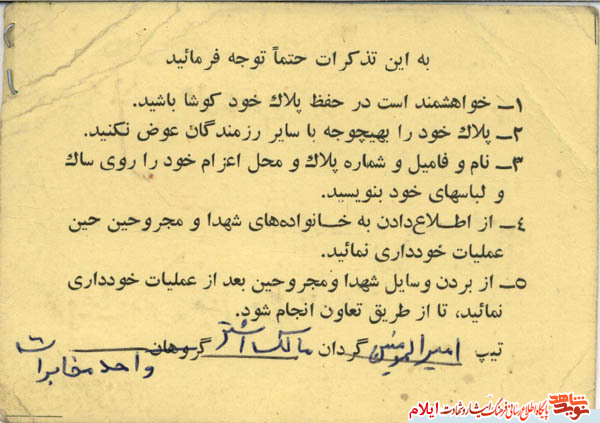 به این تذکرات حتماً توجه فرمائید
۱ــ خواهشمند است در حفظ پلاك خود کوشا باشید.
۲ــ پلاك خود را بهیچوجه با سایر رزمندگان عوض نکنید.
۳ــ نام و فامیل و شماره پلاك و محل اعزام خود را روی ساك
و لباسهای خود بنویسید.
٤ــ از اطلاع‌دادن به خانواده‌های شهدا و مجروحین حین
عملیات خودداری نمائید.
۵ــ از بردن وسایل شهدا ومجروحین بعد از عملیات خودداری
نمائید، تا از طریق تعاون انجام شود.
تیپ امیرالمومنین گردان مالک اشتر گروهان
واحد مخابرات
نوید شاهد پایگاه اطلاع رسانی فرهنگ ایثار و شهادت ایلام